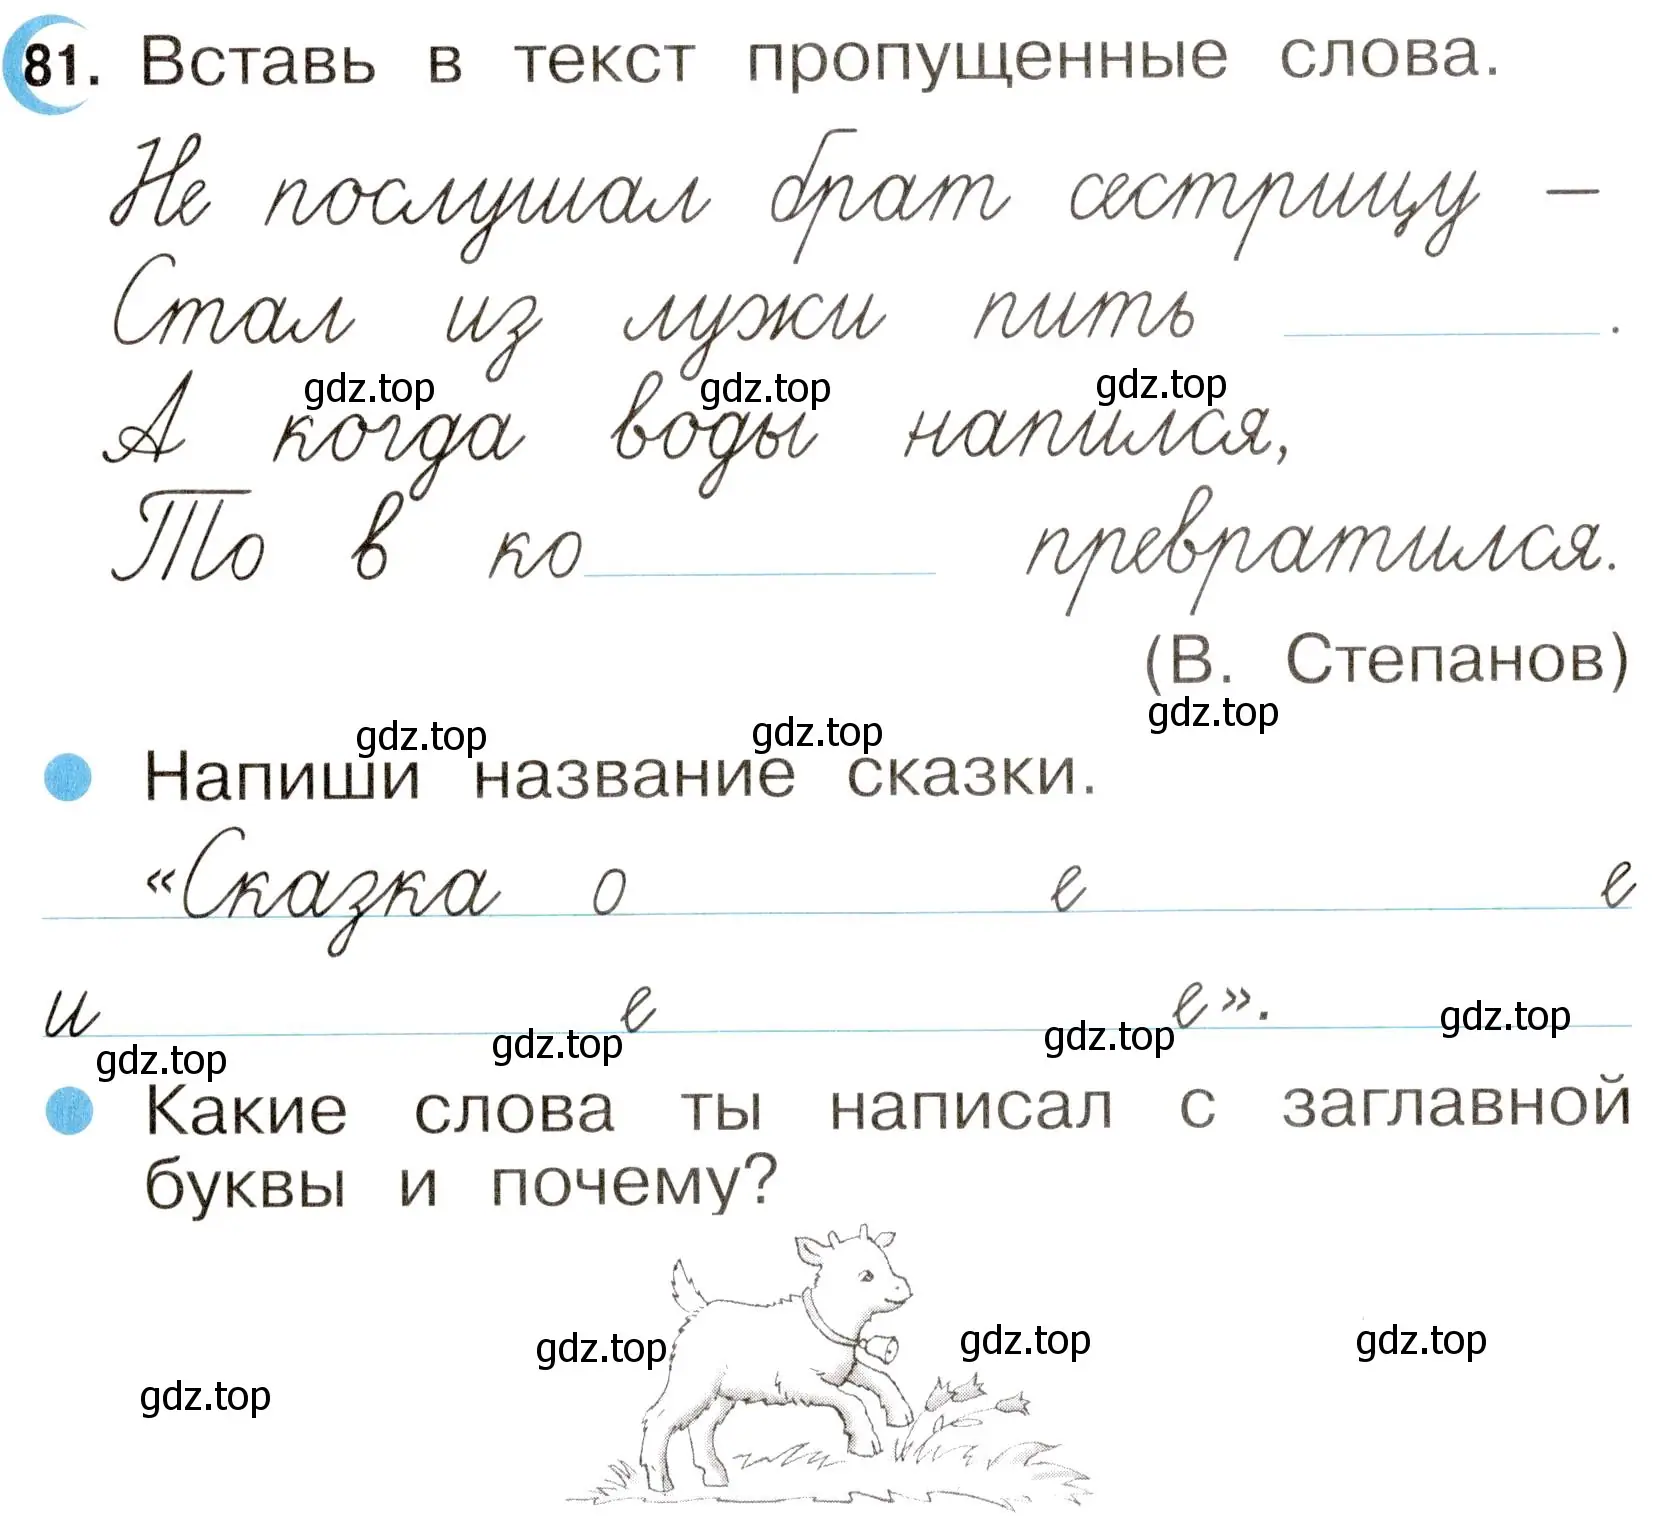 81. Вставь в текст пропущенные слова.
Не послушал брат сестрицу —
Стал из лужи пить .
gdz.top gdz.top gdz.top
А когда воды напился,
То в ко превратился.
(В. Степанов)
gdz.top gdz.top gdz.top
Напиши название сказки.
«Сказка о е е
и е е».
gdz.top gdz.top gdz.top gdz.top
Какие слова ты написал с заглавной
буквы и почему?
gdz.top gdz.top gdz.top gdz.top